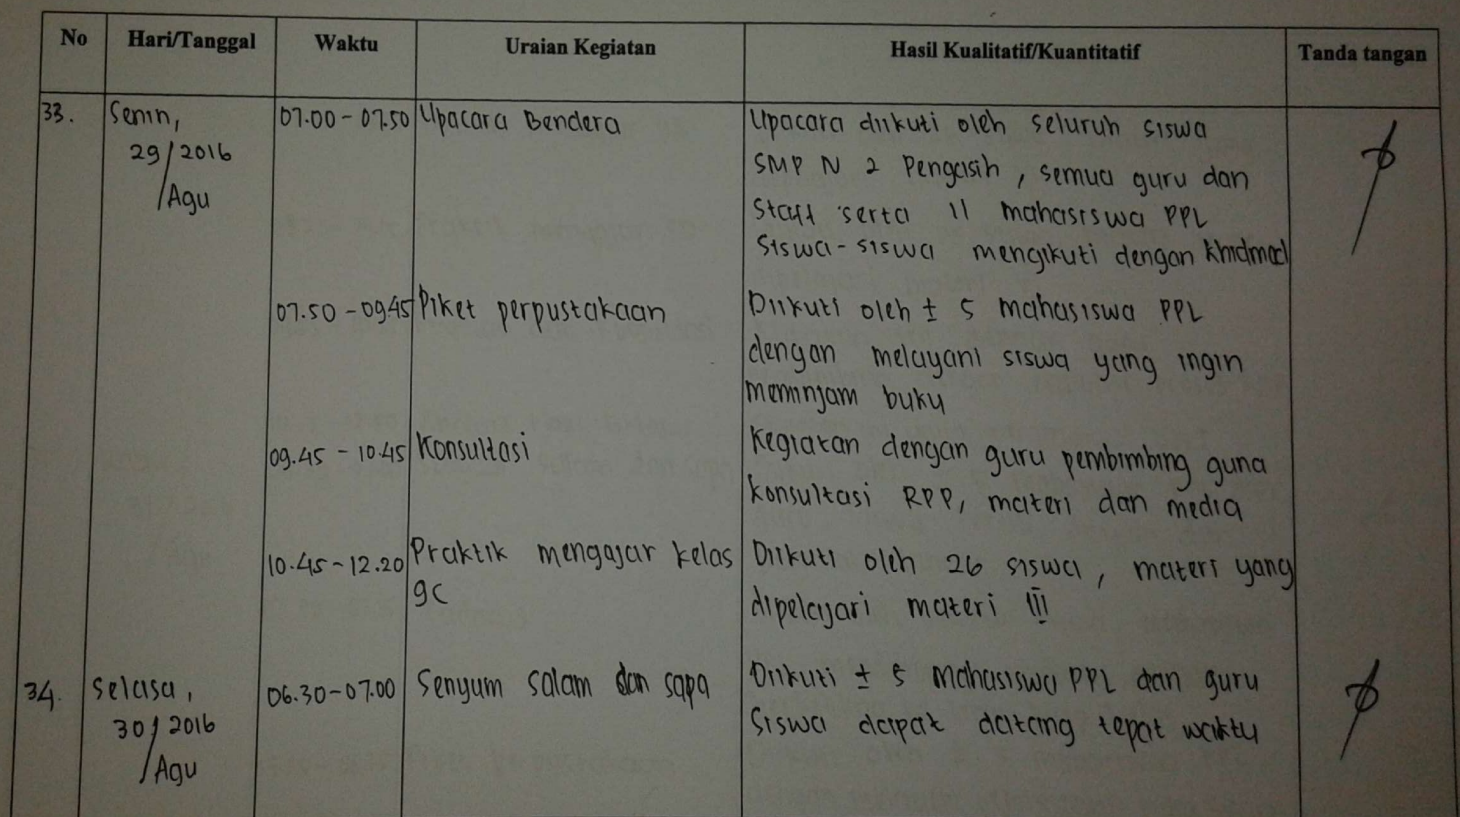 No Hari/Tanggal Waktu Uraian Kegiatan Hasil Kualitatif/Kuantitatif Tanda tangan
33. Senin, 07.00 - 07.50 Upacara Bendera Upacara diikuti oleh seluruh siswa
29/2016 SMP N 2 Pengasih, semua guru dan
/Agu Staff serta 11 mahasiswa PPL
Siswa-siswa mengikuti dengan khidmad
07.50 - 09.45 Piket perpustakaan Diikuti oleh ± 5 mahasiswa PPL
dengan melayani siswa yang ingin
meminjam buku
09.45 - 10.45 Konsultasi Kegiatan dengan guru pembimbing guna
konsultasi RPP, materi dan media
10.45 - 12.20 Praktik mengajar kelas Diikuti oleh 26 siswa, materi yang
9C dipelajari materi III
34. Selasa, 06.30-07.00 Senyum salam dan sapa Diikuti ± 5 mahasiswa PPL dan guru
30/2016 Siswa dapat datang tepat waktu
/Agu